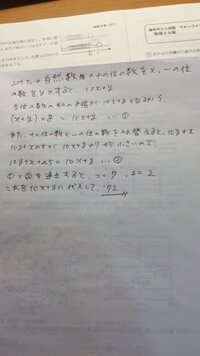 2けたの自然数の十の位の数をx、一の位
の数をyとすると、10x+y
各位の数の和の8倍が10x+yとなるから、
(x+y)×8 = 10x+y …①
また、十の位の数と一の位の数を入れ替えると、10y+x
10y+xの方が10x+yより45小さいので、
10y+x+45 = 10x+y …②
①と②を連立すると、x=7, y=2
これを10x+yに代入して、72